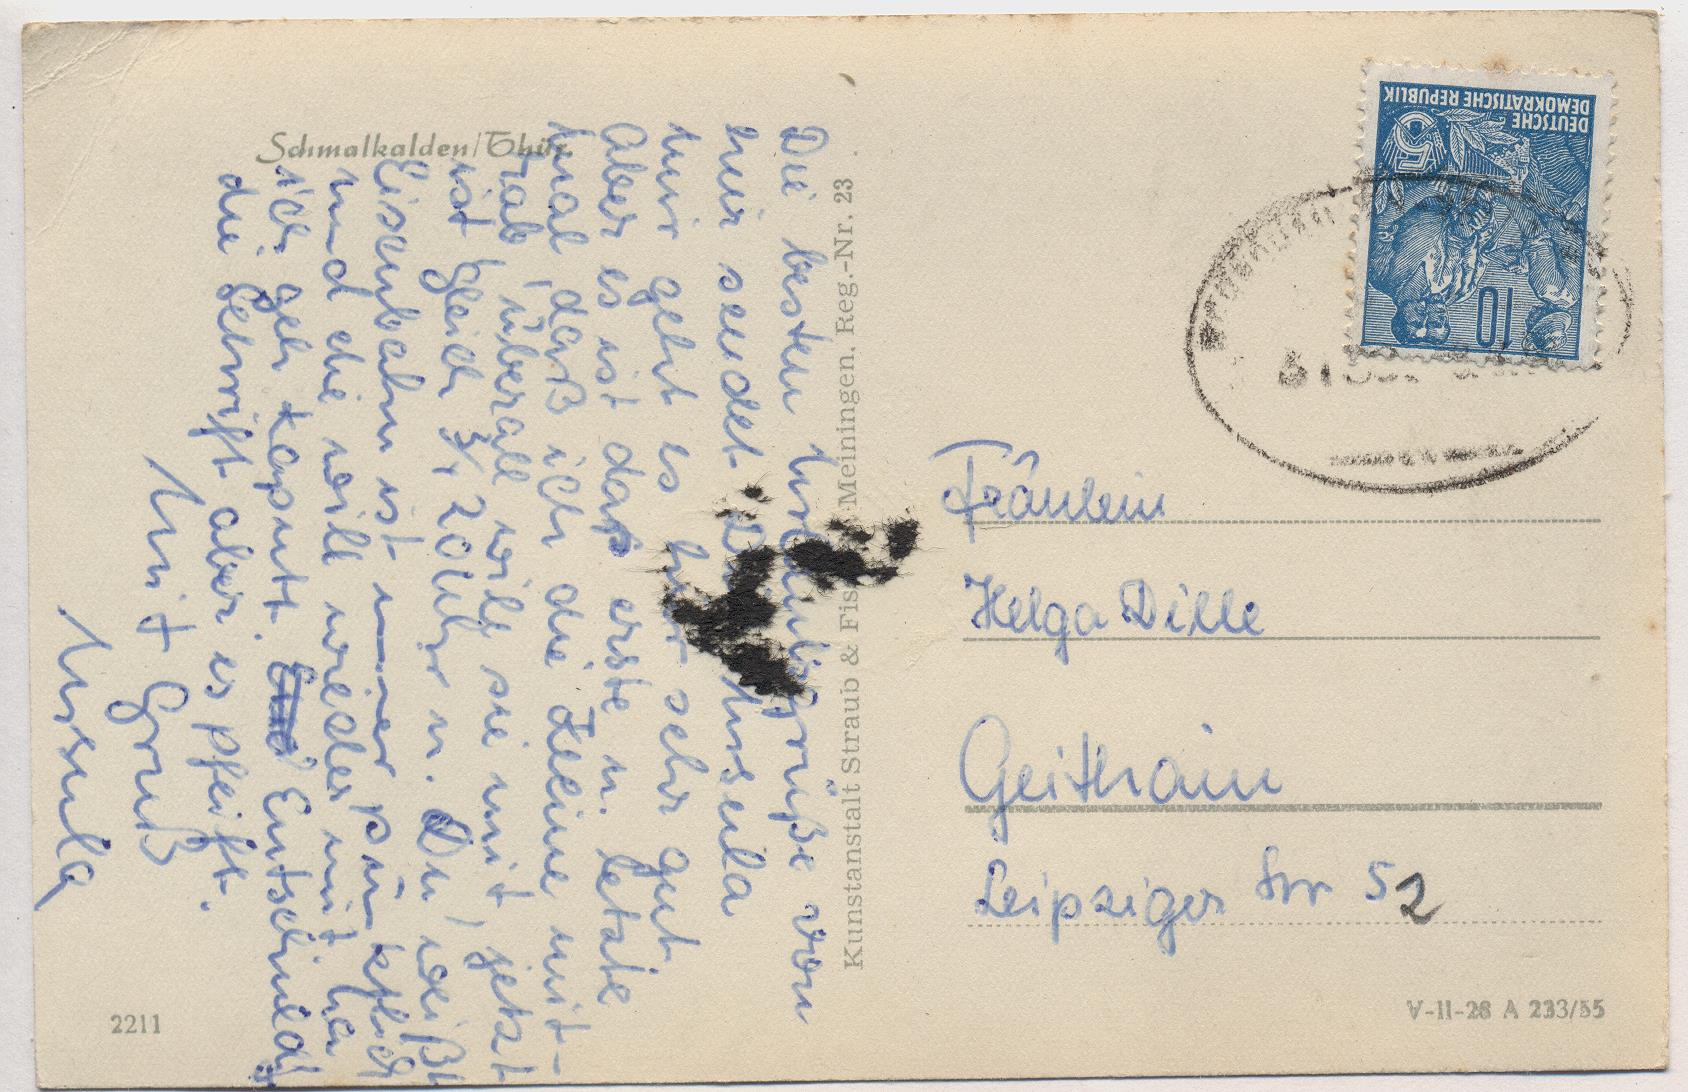 Schmalkalden/Thür.
Die besten Urlaubsgrüße von
hier sendet Dir Ursula
Mir geht es hier sehr gut
Aber es ist das erste u. letzte
mal daß ich die Kleine mit-
hab, überall will sie mit, jetzt
ist gleich ¾ 20 Uhr u. Du weißt
Eisenbahn ist immer pünktlich
und die will wieder mit her
ich geh kaputt. Entschuld
die Schrift aber es pfeift.
Mit Gruß
Ursula
2211
Kunstanstalt Straub & Fis Meiningen, Reg.-Nr. 23
DEUTSCHE
DEMOKRATISCHE REPUBLIK
5
10
Fräulein
Helga Dille
Geithain
Leipziger Str 52
V-II-28 A 233/55